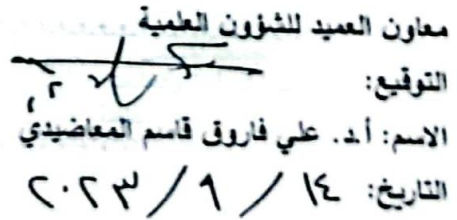 معاون العميد للشؤون العلمية
التوقيع:
الاسم: أ.د. علي فاروق قاسم المعاضيدي
التاريخ: ١٤ / ٩ / ٢٠٢٣